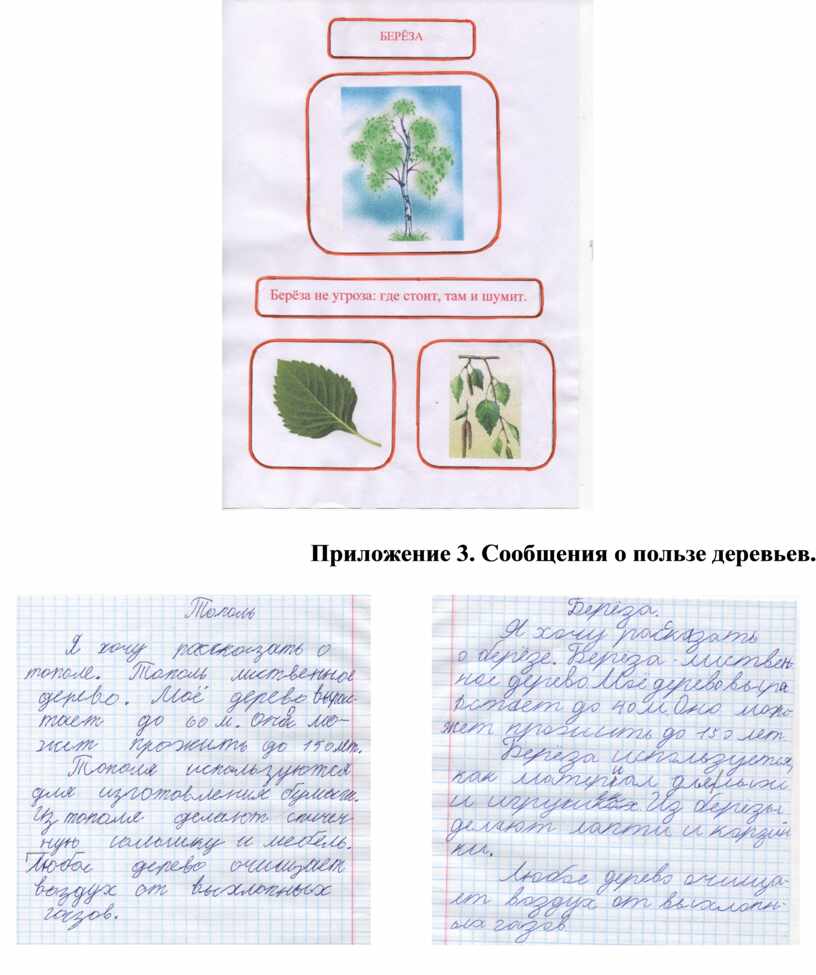 БЕРЁЗА
Берёза не угроза: где стоит, там и шумит.
Приложение 3. Сообщения о пользе деревьев.
Тополь
Я хочу рассказать о
тополе. Тополь лиственное
дерево. Моё дерево вырас-
тает до 60 м. Оно мо-
жит прожить до 150 лет.
Тополя используются
для изготовления бумаги.
Из тополя делают спичеч-
ную соломку и мебель.
Любое дерево очищает
воздух от выхлопных
газов.
Берёза.
Я хочу рассказать
о берёзе. Береза - листвен-
ное дерево. Моё дерево выра
встает до 40 м. Оно мож-
жет прожить до 150 лет.
Береза используется,
как материал для лыж
и игрушках. Из березы
делают лапти и корзин
ки.
Любое дерево очища-
ет воздух от выхлопн-
ых газов